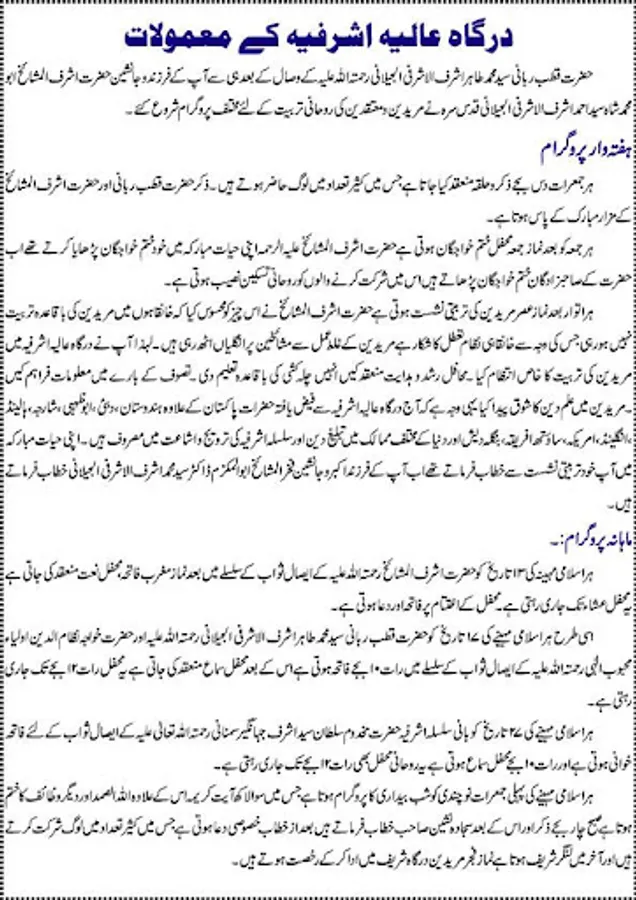 درگاہ عالیہ اشرفیہ کے معمولات
حضرت قطب ربانی سید محمد طاہر اشرف الاشرفی الجیلانی رحمتہ اللہ علیہ کے وصال کے بعد ہی سے آپ کے فرزند و جانشین حضرت اشرف المشائخ ابو
محمد شاہ سید احمد اشرف الاشرفی الجیلانی قدس سرہ نے مریدین و معتقدین کی روحانی تربیت کے لئے مختلف پروگرام شروع کئے۔
ہفتہ وار پروگرام
ہر جمعرات دس بجے ذکر و حلقہ منعقد کیا جاتا ہے جس میں کثیر تعداد میں لوگ حاضر ہوتے ہیں۔ ذکر حضرت قطب ربانی اور حضرت اشرف المشائخ
کے مزار مبارک کے پاس ہوتا ہے۔
ہر جمعہ کو بعد نماز جمعہ محفل ختم خواجگان ہوتی ہے حضرت اشرف المشائخ علیہ الرحمہ اپنی حیات مبارکہ میں خود ختم خواجگان پڑھایا کرتے تھے اب
حضرت کے صاحبزادگان ختم خواجگان پڑھاتے ہیں اس میں شرکت کرنے والوں کو روحانی تسکین نصیب ہوتی ہے۔
ہر اتوار بعد نماز عصر مریدین کی تربیتی نشست ہوتی ہے حضرت اشرف المشائخ نے اس چیز کو محسوس کیا کہ خانقاہوں میں مریدین کی باقاعدہ تربیت
نہیں ہورہی جس کی وجہ سے خانقاہی نظام تعطل کا شکار ہے مریدین کے غلط عمل سے مشائخین پر انگلیاں اٹھ رہی ہیں۔ لہذا آپ نے درگاہ عالیہ اشرفیہ میں
مریدین کی تربیت کا خاص انتظام کیا۔ محافل رشد و ہدایت منعقد کیں انہیں چلہ کشی کی باقاعدہ تعلیم دی۔ تصوف کے بارے میں معلومات فراہم کیں
۔ مریدین میں علم دین کا شوق پیدا کیا یہی وجہ ہے کہ آج درگاہ عالیہ اشرفیہ سے فیض یافتہ حضرات پاکستان کے علاوہ ہندوستان، دبئی، ابوظہبی، شارجہ، ہالینڈ
،انگلینڈ، امریکہ، ساؤتھ افریقہ، بنگلہ دیش اور دنیا کے مختلف ممالک میں تبلیغ دین اور سلسلہ اشرفیہ کی ترویج و اشاعت میں مصروف ہیں۔ اپنی حیات مبارکہ
میں آپ خود تربیتی نشست سے خطاب فرماتے تھے اب آپ کے فرزند اکبر و جانشین فخر المشائخ ابو المکرم ڈاکٹر سید محمد اشرف الاشرفی الجیلانی خطاب فرماتے
ہیں۔
ماہانہ پروگرام:۔
ہر اسلامی مہینہ کی ۱۳ تاریخ کو حضرت اشرف المشائخ رحمتہ اللہ علیہ کے ایصال ثواب کے سلسلے میں بعد نماز مغرب فاتحہ، محفل نعت منعقد کی جاتی ہے
یہ محفل عشاء تک جاری رہتی ہے۔ محفل کے اختتام پر فاتحہ اور دعا ہوتی ہے۔
اسی طرح ہر اسلامی مہینے کی ۱۷ تاریخ کو حضرت قطب ربانی سید محمد طاہر اشرف الاشرفی الجیلانی رحمتہ اللہ علیہ اور حضرت خواجہ نظام الدین اولیاء
محبوب الٰہی رحمتہ اللہ علیہ کے ایصال ثواب کے سلسلے میں رات ۱۰ بجے فاتحہ ہوتی ہے اس کے بعد محفل سماع منعقد کی جاتی ہے یہ محفل رات ۱۲ بجے تک جاری
رہتی ہے۔
ہر اسلامی مہینے کی ۲۷ تاریخ کو بانی سلسلہ اشرفیہ حضرت مخدوم سلطان سید اشرف جہانگیر سمنانی رحمتہ اللہ تعالیٰ علیہ کے ایصال ثواب کے لئے فاتحہ
خوانی ہوتی ہے اور رات ۱۰ بجے محفل سماع ہوتی ہے یہ روحانی محفل بھی رات ۱۲ بجے تک جاری رہتی ہے۔
ہر اسلامی مہینے کی پہلی جمعرات نوچندی کو شب بیداری کا پروگرام ہوتا ہے جس میں سوا لاکھ آیت کریمہ۔ اس کے علاوہ اللہ الصمد اور دیگر وظائف کا ختم
ہوتا ہے صبح چار بجے ذکر اور اس کے بعد سجادہ نشین صاحب خطاب فرماتے ہیں بعد از خطاب خصوصی دعا ہوتی ہے جس میں کثیر تعداد میں لوگ شرکت کرتے
ہیں اور آخر میں لنگر شریف ہوتا ہے نماز فجر مریدین درگاہ شریف میں ادا کر کے رخصت ہوتے ہیں۔